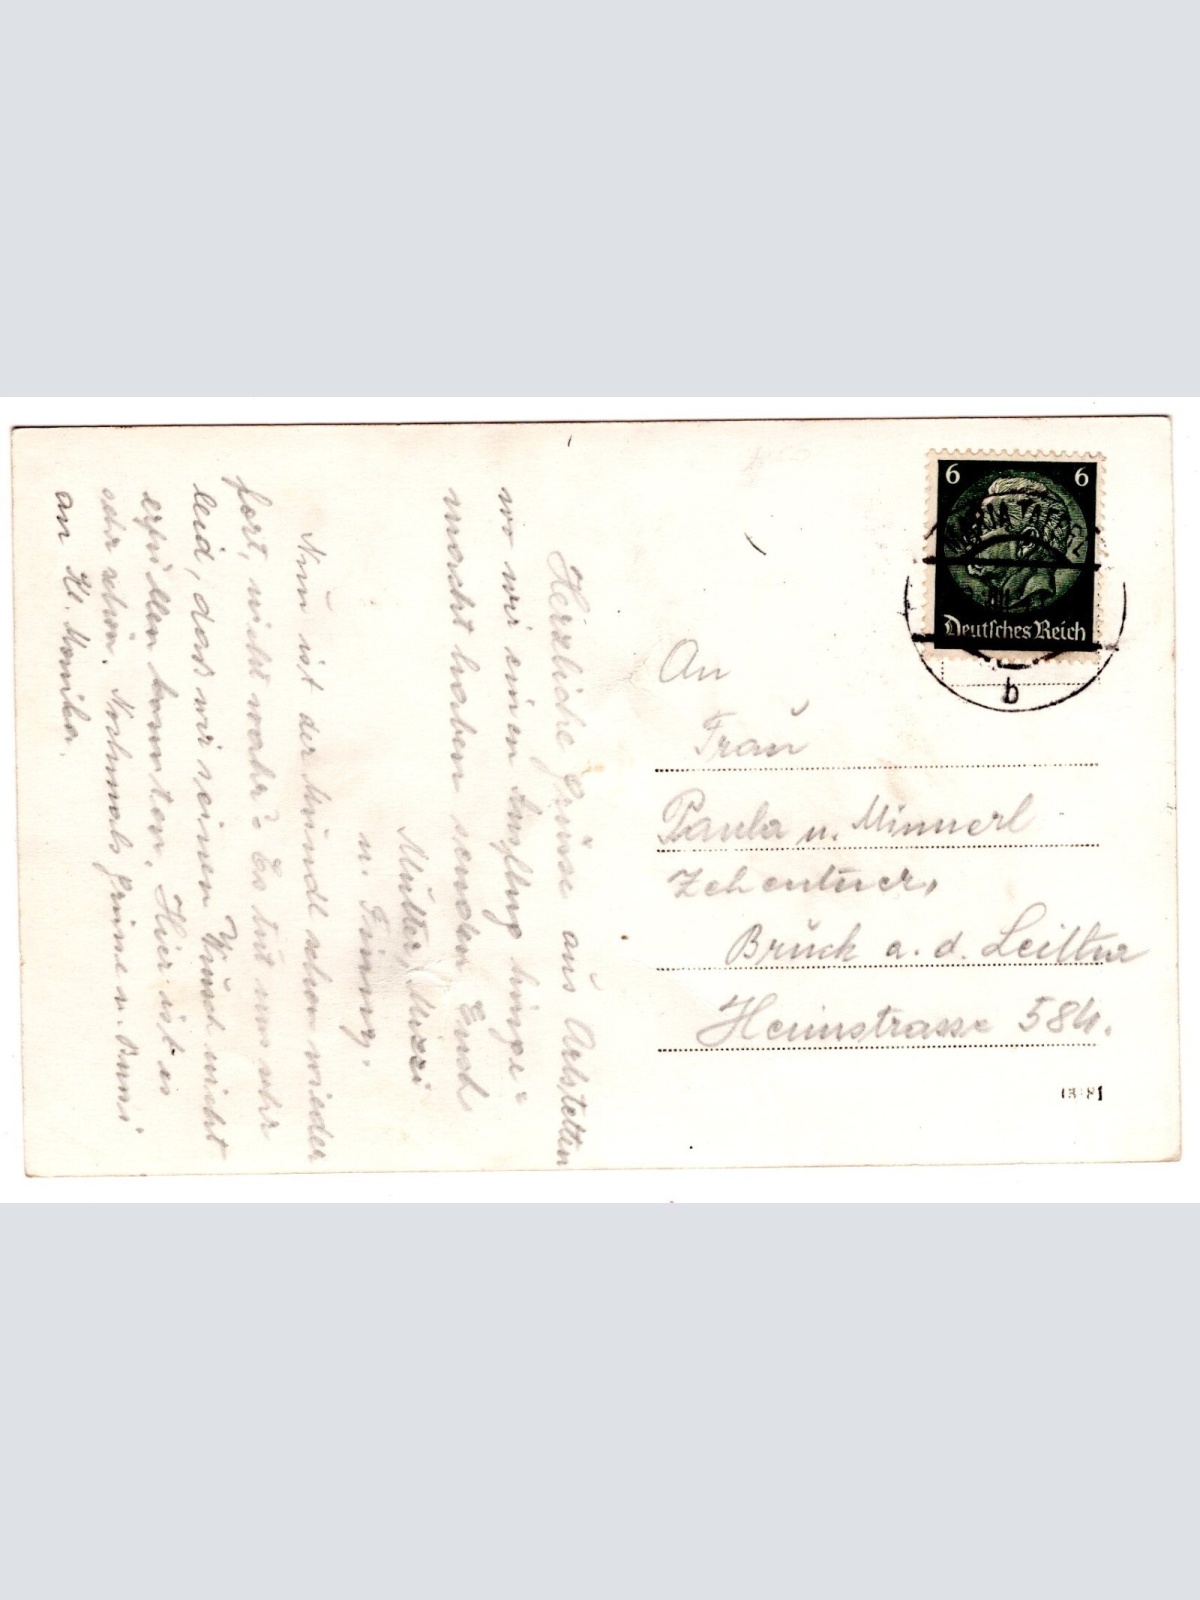 6 6
MARIA TAFERL
Deutsches Reich
b
An
Frau
Paula u. Minnerl
Zehentner,
Bruck a. d. Leitha
Heimstrasse 584.
13181
Herzliche Grüsse aus Artstetten
wo wir einen Ausflug hinge-
macht haben senden Euch
Mutter, Mizzi
u. Finny.
Nun ist der Heindl schon wieder
fort, nicht wahr? Es tut uns sehr
leid, dass wir seinen Wunsch nicht
erfüllen konnten. Hier ist es
sehr schön. Nochmals Grüsse u. Bussi
an Kl. Monika.